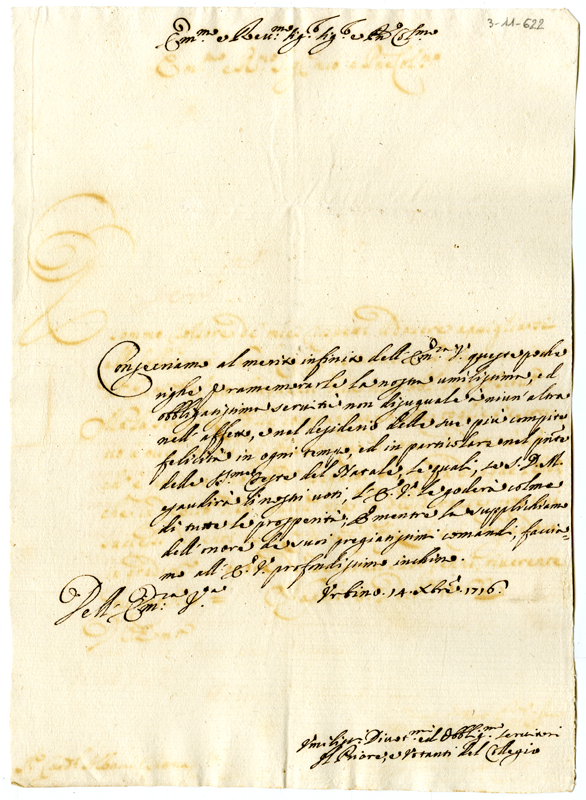 3-11-622
Em.mo e Rev.mo Sig.r Sig.r e P.rone Col.mo
Consecriamo al merito infinito dell' Em.za V. queste poche
righe p ramemorarle la nostra umilissima, ed
obbligatissima servitù non disuguale a niun' altra
nell' affetto, e nel desiderio delle sue più compite
felicità in ogni tempo, ed in particolare nel pnte
delle S.me Feste del Natale, le quali, se S. D. M.
esaudirà li nostri voti, l' E. V. le goderà colme
di tutte le prosperità; E mentre la supplichiamo
dell' onore de suoi pregiatissimi comandi, faccia=
mo all' E. V. profondissimo inchino.
Dell' Em.za V.a
Urbino. 14. Xbre. 1716.
Umiliss. Divot.mi ed Obblig.mi servitori
Il Priore, e Votanti del Collegio